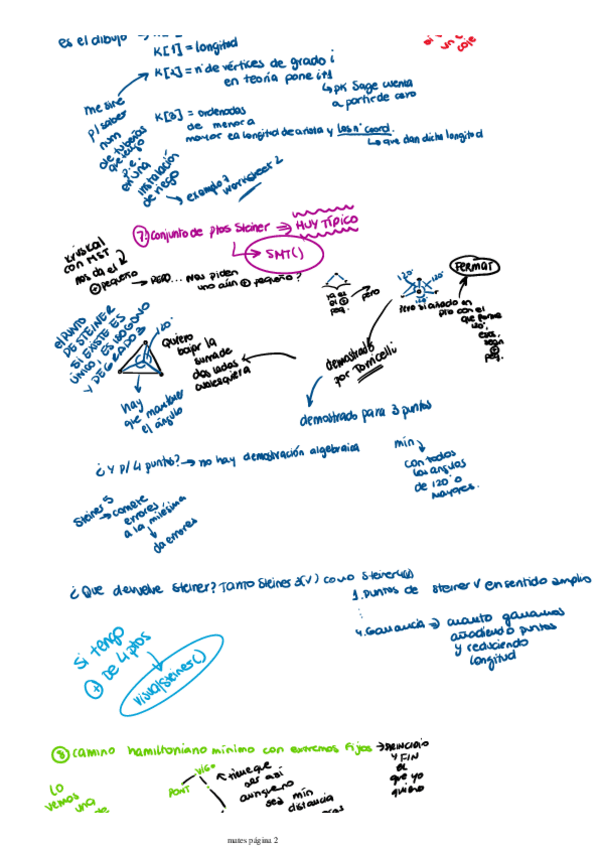 es el dibujo
K[1] = longitud
K[2] = nº de vértices de grado i
en teoría pone i+1
↳ pk Sage cuenta
a partir de cero
me sirve
p/ saber
num
de tuberías
que tengo
p.e.
en una
instalación
de riego
K[3] = ordenadas
de menor a
mayor ea longitud de arista y las nº coord.
↳ que dan dicha longitud
↳ ejemplo 3
worksheet 2
7. conjunto de ptos Steiner ⇒ MUY TÍPICO
↳ SMT()
Kruskal
con MST
nos da el
⊕ pequeño → PERO... nos piden
uno aún ⊕ pequeño?
ya es
el ⊕
peq.
pero
120º
120º
FERMAT
Pero si añado en
pto con el
que forme
120º,
el punto
DE STEINER
SI EXISTE ES
ÚNICO, ES ISÓGONO
Y DE GRADO 3
120º
quiero
bajar la
suma de
dos lados
cualesquiera
demostrado
por Torricelli
hay
que mantener
el ángulo
demostrado para 3 puntos
¿Y p/ 4 puntos? → no hay demostración algebraica
mín
con todos
los ángulos
de 120º o
mayores.
Steiner 5
→ comete
errores
a la milésima
↳ da errores
¿Que devuelve Steiner? Tanto Steiner3(V) como Steiner4(V)
1. puntos de Steiner V en sentido amplio
4. Ganancia → cuanto ganamos
añadiendo puntos
y reduciendo
longitud
Si tengo
⊕ de 4 ptos
VisualSteiner()
8. camino hamiltoniano mínimo con extremos fijos → PRINCIPIO
Y FIN
el
que yo
quiero
VIGO
PONT
tiene que
ser así
aunque no
sea mín
distancia
Lo
vemos
una
mates página 2